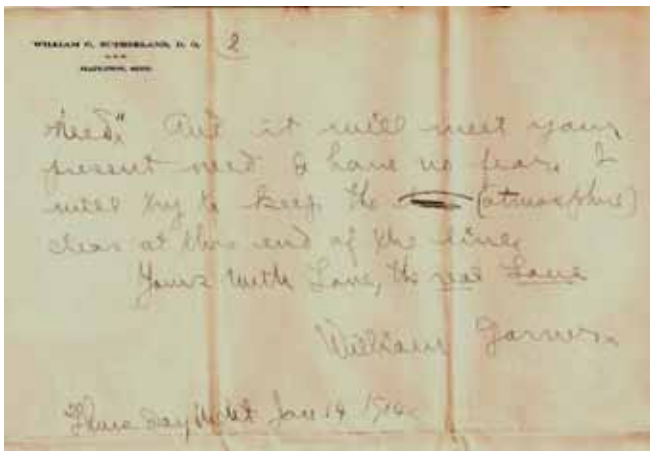 WILLIAM G. SUTHERLAND, D. O.
2
MANKATO, MINN.
need." But it will meet your
present need & have no fear. I
will try to keep the (atmosphere)
clear at this end of the line.
Yours with Love, the real Love
William Garner.
Thursday Night Jan 14 1914